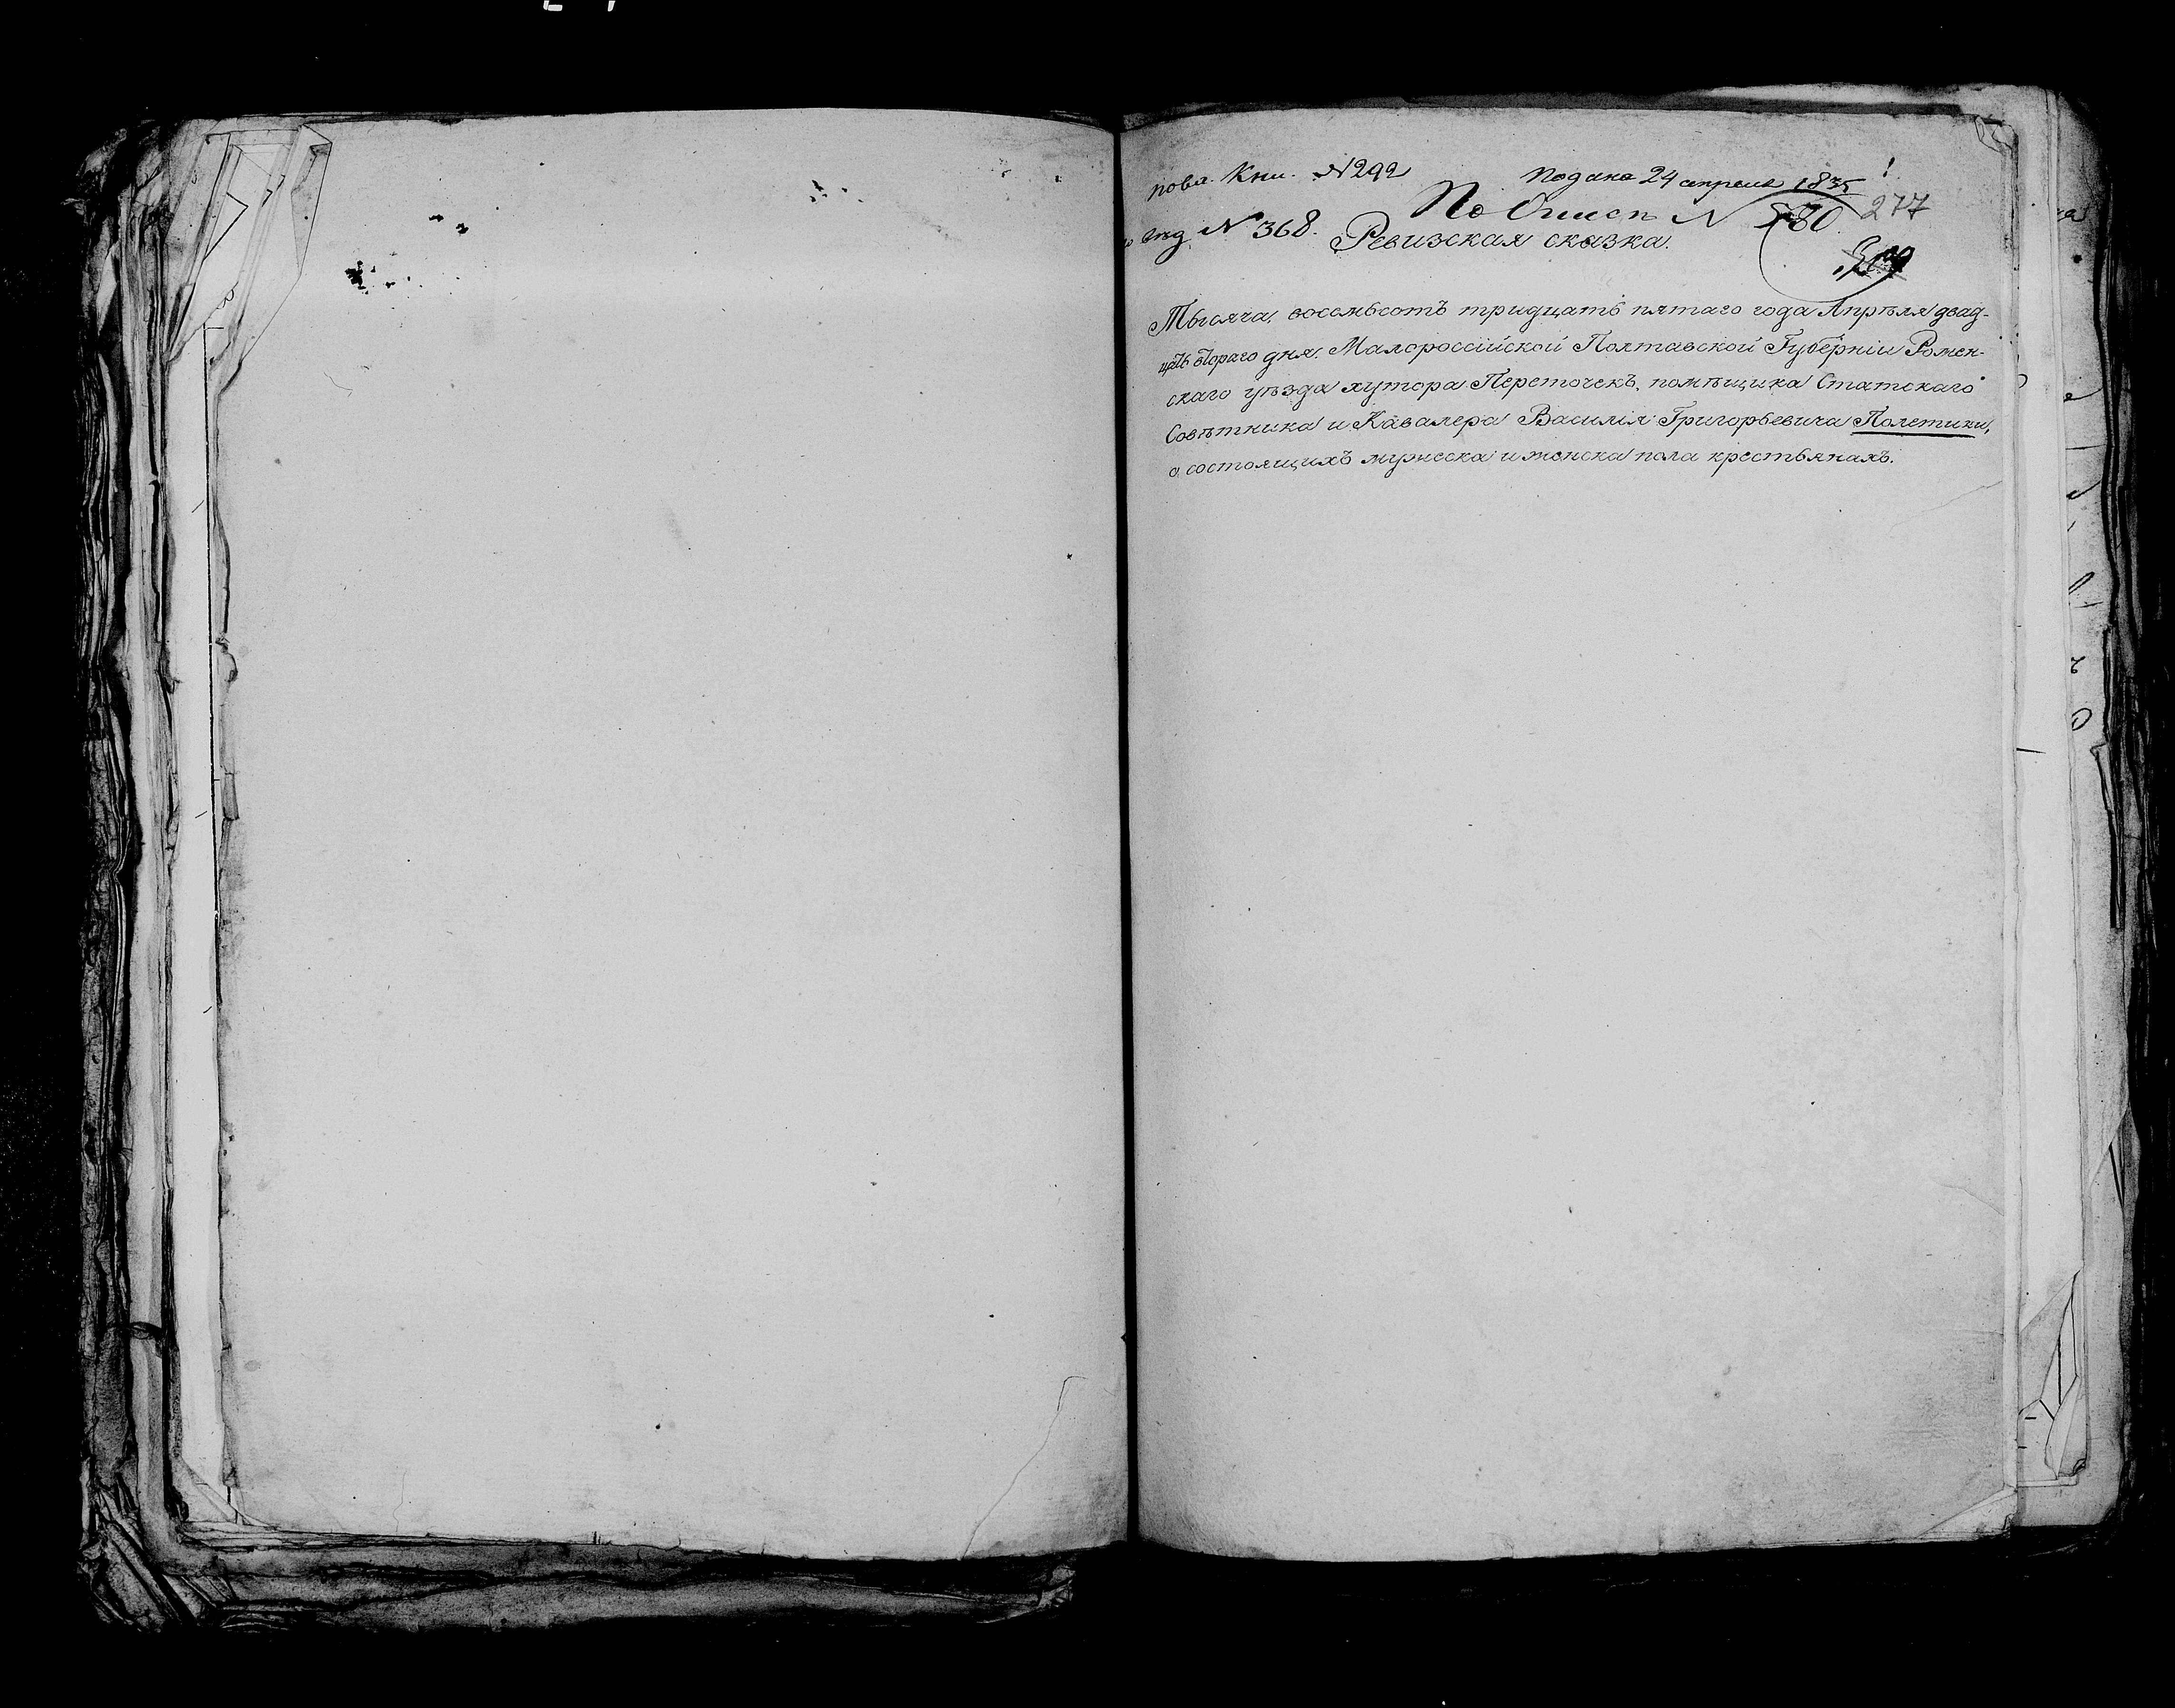 пова. Кни. № 292 Подана 24 апреля 1835
По Описи № 580. 277
вѣд № 368. Ревизская сказка.
Тысяча, восемьсотъ тридцать пятаго года Апрѣля двад-
цать втораго дня. Малороссійской Полтавской Губерніи Ромен-
скаго уѣзда хутора Переточекъ, помѣщика Статскаго
Совѣтника и Кавалера Василія Григорьевича Полетики,
о состоящихъ мужеска и женска пола крестьянахъ.